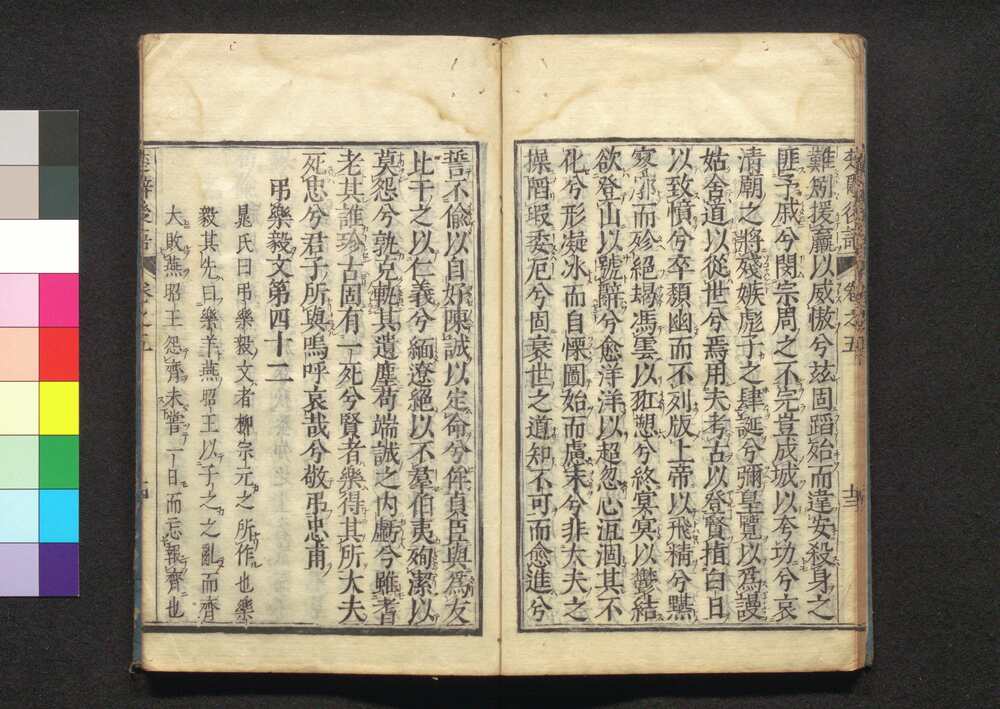 楚辭後語 卷之五 十三
難劒援羸以威慠兮玆固蹈殆而違安殺身之
匪予戚兮閔宗周之不完豈成城以夸功兮哀
清廟之將殘嫉彪子之肆誕兮彌皇覽以爲謾
姑舍道以從世兮焉用夫考古以登賢指白日
以致憤兮卒頹幽而不列版上帝以飛精兮黮
寥廓而殄絕朅馮雲以狂愬兮終冥冥以鬱結
欲登山以號辭兮愈洋洋以超忽心沍涸其不
化兮形凝冰而自慄圖始而慮末兮非大夫之
操陷瑕委厄兮固衰世之道知不可而愈進兮
誓不偸以自好陳誠以定命兮侔貞臣與爲友
比干之以仁義兮緬遼絕以不羣伯夷殉潔以
莫怨兮孰克軌其遺塵苟端誠之內虧兮雖耆
老其誰珍古固有一死兮賢者樂得其所大夫
死忠兮君子所與嗚呼哀哉兮敬弔忠甫
弔樂毅文第四十二
晁氏曰弔樂毅文者柳宗元之所作也樂
毅其先曰樂羊燕昭王以子之之亂而齊
大敗燕昭王怨齊未嘗一日而忘報齊也
楚辭後語 卷之五 十四